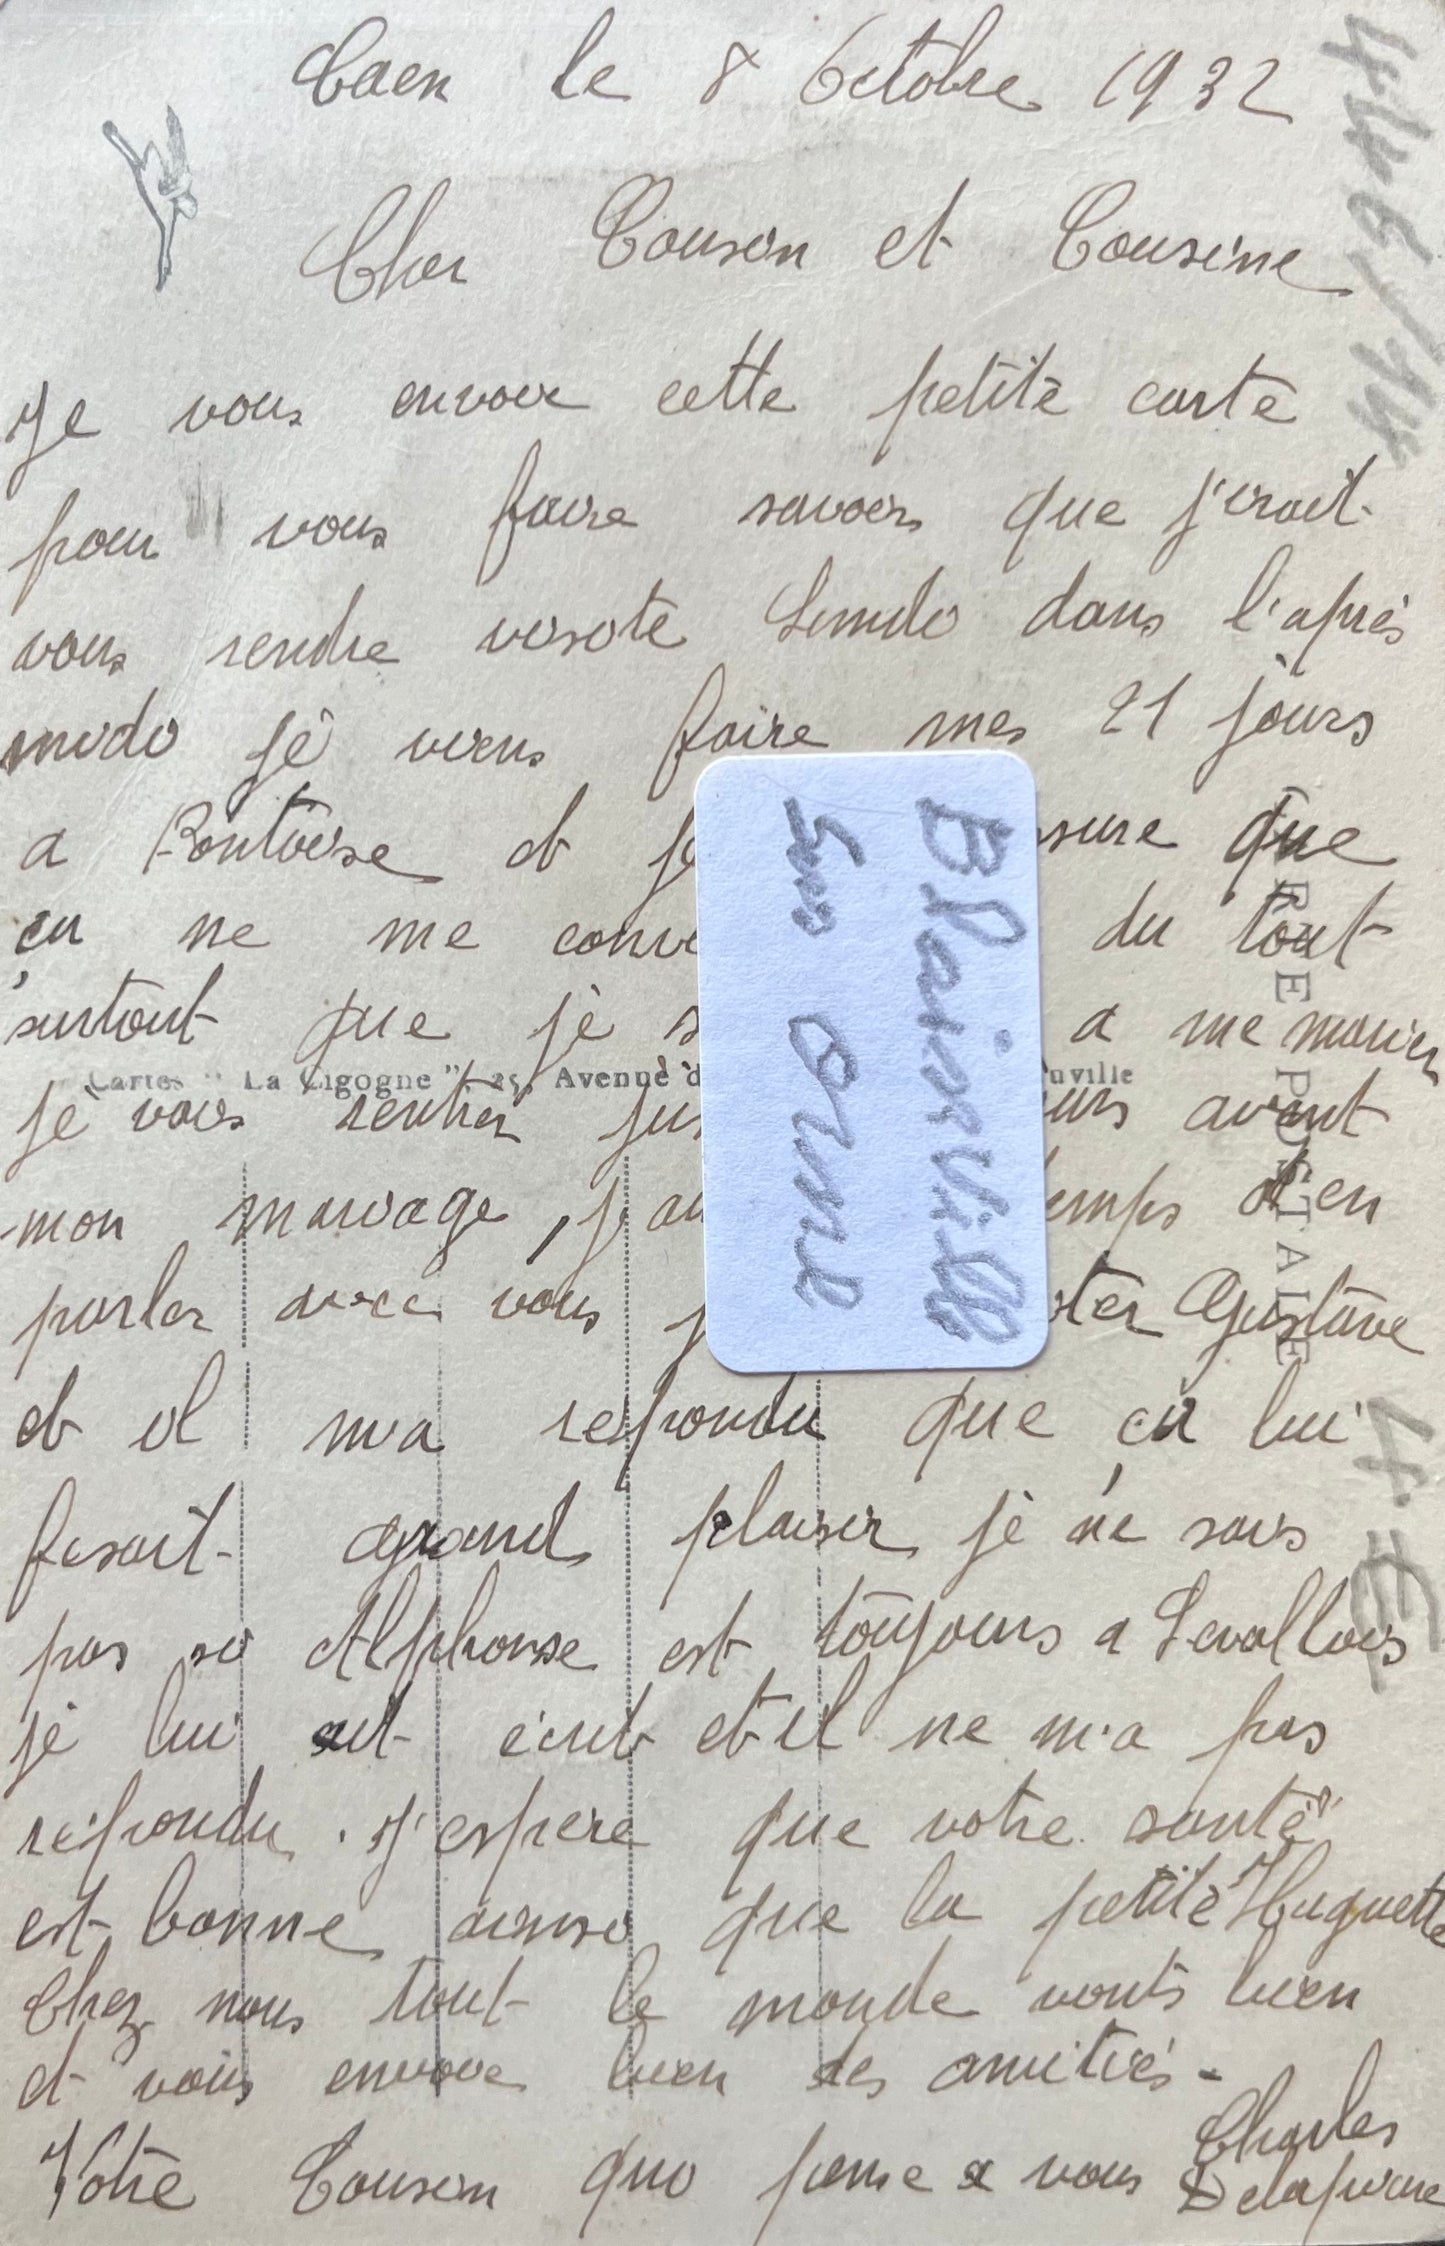 Caen le 8 Octobre 1932
Cher Cousin et Cousine
Je vous envoie cette petite carte
pour vous faire savoir que j'irait
vous rendre visite Lundi dans l'après
midi je viens faire mes 21 jours
a Pontoise et je ssure que
ça ne me conv du tout
surtout que je s a me marier
Cartes " La Cigogne ", 25, Avenue d uville
je vais rentrer jus urs avant
mon mariage, j'au emps d'en
parler avec vous oter Gustave
et il m'a repondu que ça lui
fesait grand plaisir je ne sais
pas si Alphonse est toujours a Levallois
je lui ait écrit et il ne m'a pas
répondu. J'espere que votre santé
est bonne ainsi que la petite Huguette
Chez nous tout le monde vonts bien
et vous envoie bien des amitiés -
Votre Cousin qui pense a vous Charles
CARTE POSTALE
Blainville
sur Orne